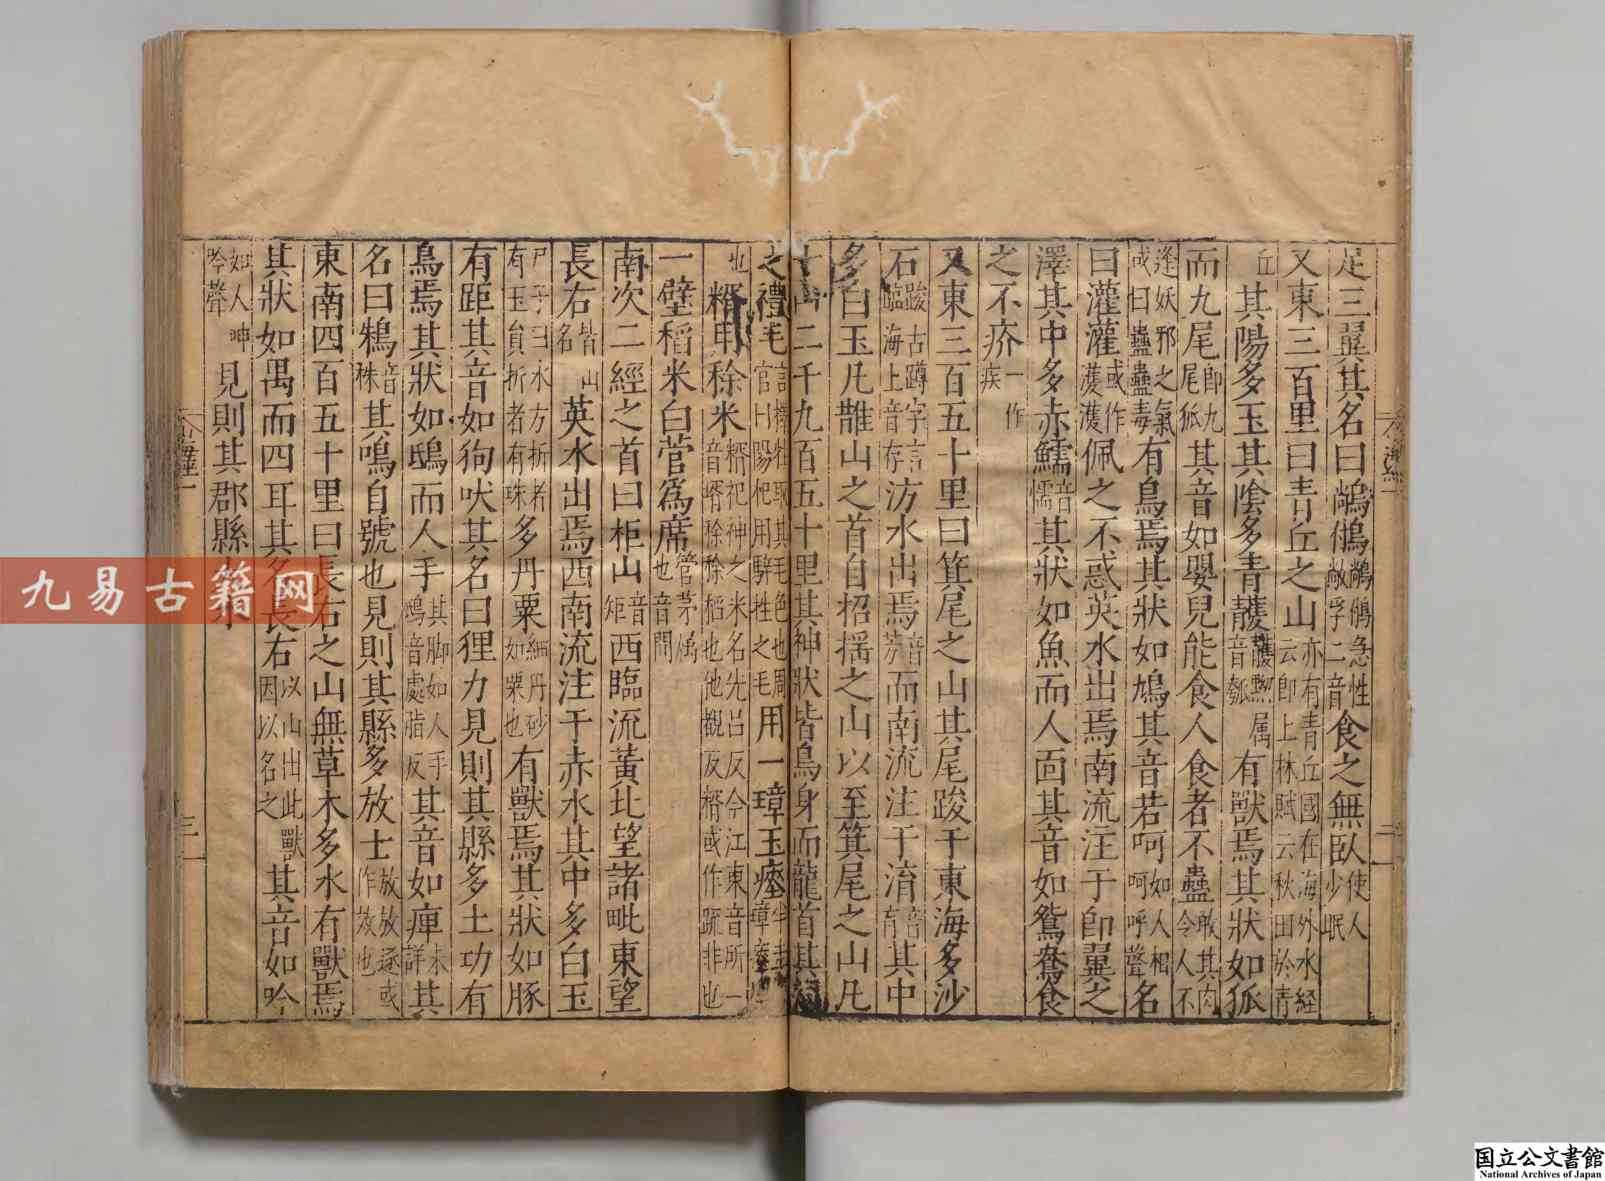 足三翼其名曰鵸䳜鵸䳜急性敵孚二音食之無臥使人少眠
又東三百里曰青丘之山亦有青丘國在海外水經云即上林賦云秋田於青
丘其陽多玉其陰多青䨼䨼黝属音瓠有獸焉其狀如狐
而九尾即九尾狐其音如嬰兒能食人食者不蠱令敢其肉人不
逢妖邪之氣或曰蠱蠱毒有鳥焉其狀如鳩其音若呵如人相呵呼聲名
曰灌灌或作濩濩佩之不惑英水出焉南流注于即翼之
澤其中多赤鱬音懦其狀如魚而人面其音如鴛鴦食
之不疥一作疾
又東三百五十里曰箕尾之山其尾踆于東海多沙
石踆古蹲字言臨海上音存汸水出焉音芳而南流注于淯音育其中
多白玉凡䧿山之首自招揺之山以至箕尾之山凡
十山二千九百五十里其神狀皆鳥身而龍首其祠
之禮毛言擇牲取其毛色也周官曰陽祀用騂牲之毛用一璋玉瘞
也糈用稌米糈祀神之米名先呂反今江東音所一音壻稌稌稻也他覩反糈或作疏非也
一璧稻米白菅為席菅茅屬也音間
南次二經之首曰柜山音矩西臨流黃北望諸毗東望
長右皆山名英水出焉西南流注于赤水其中多白玉
尸子曰水方折者有玉員折者有珠多丹粟細丹砂如粟也有獸焉其狀如豚
有距其音如狗吠其名曰狸力見則其縣多土功有
鳥焉其狀如鴟而人手其脚如人手鴟音處脂反其音如痺未詳其
名曰鴸音株其鳴自號也見則其縣多放士放放逐或作效也
東南四百五十里曰長右之山無草木多水有獸焉
其狀如禺而四耳其名長右以山出此獸因以名之其音如吟
如人呻吟聲見則其郡縣
九易古籍网
国立公文書館
National Archives of Japan